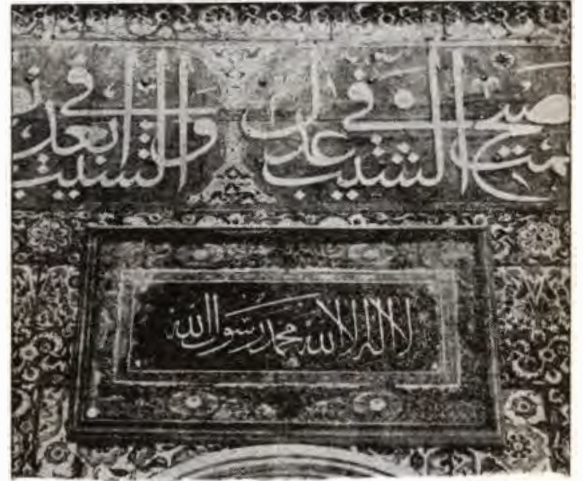 نصيح الشيب في عذل والشيب ابعد في
لا اله الا الله محمد رسول الله